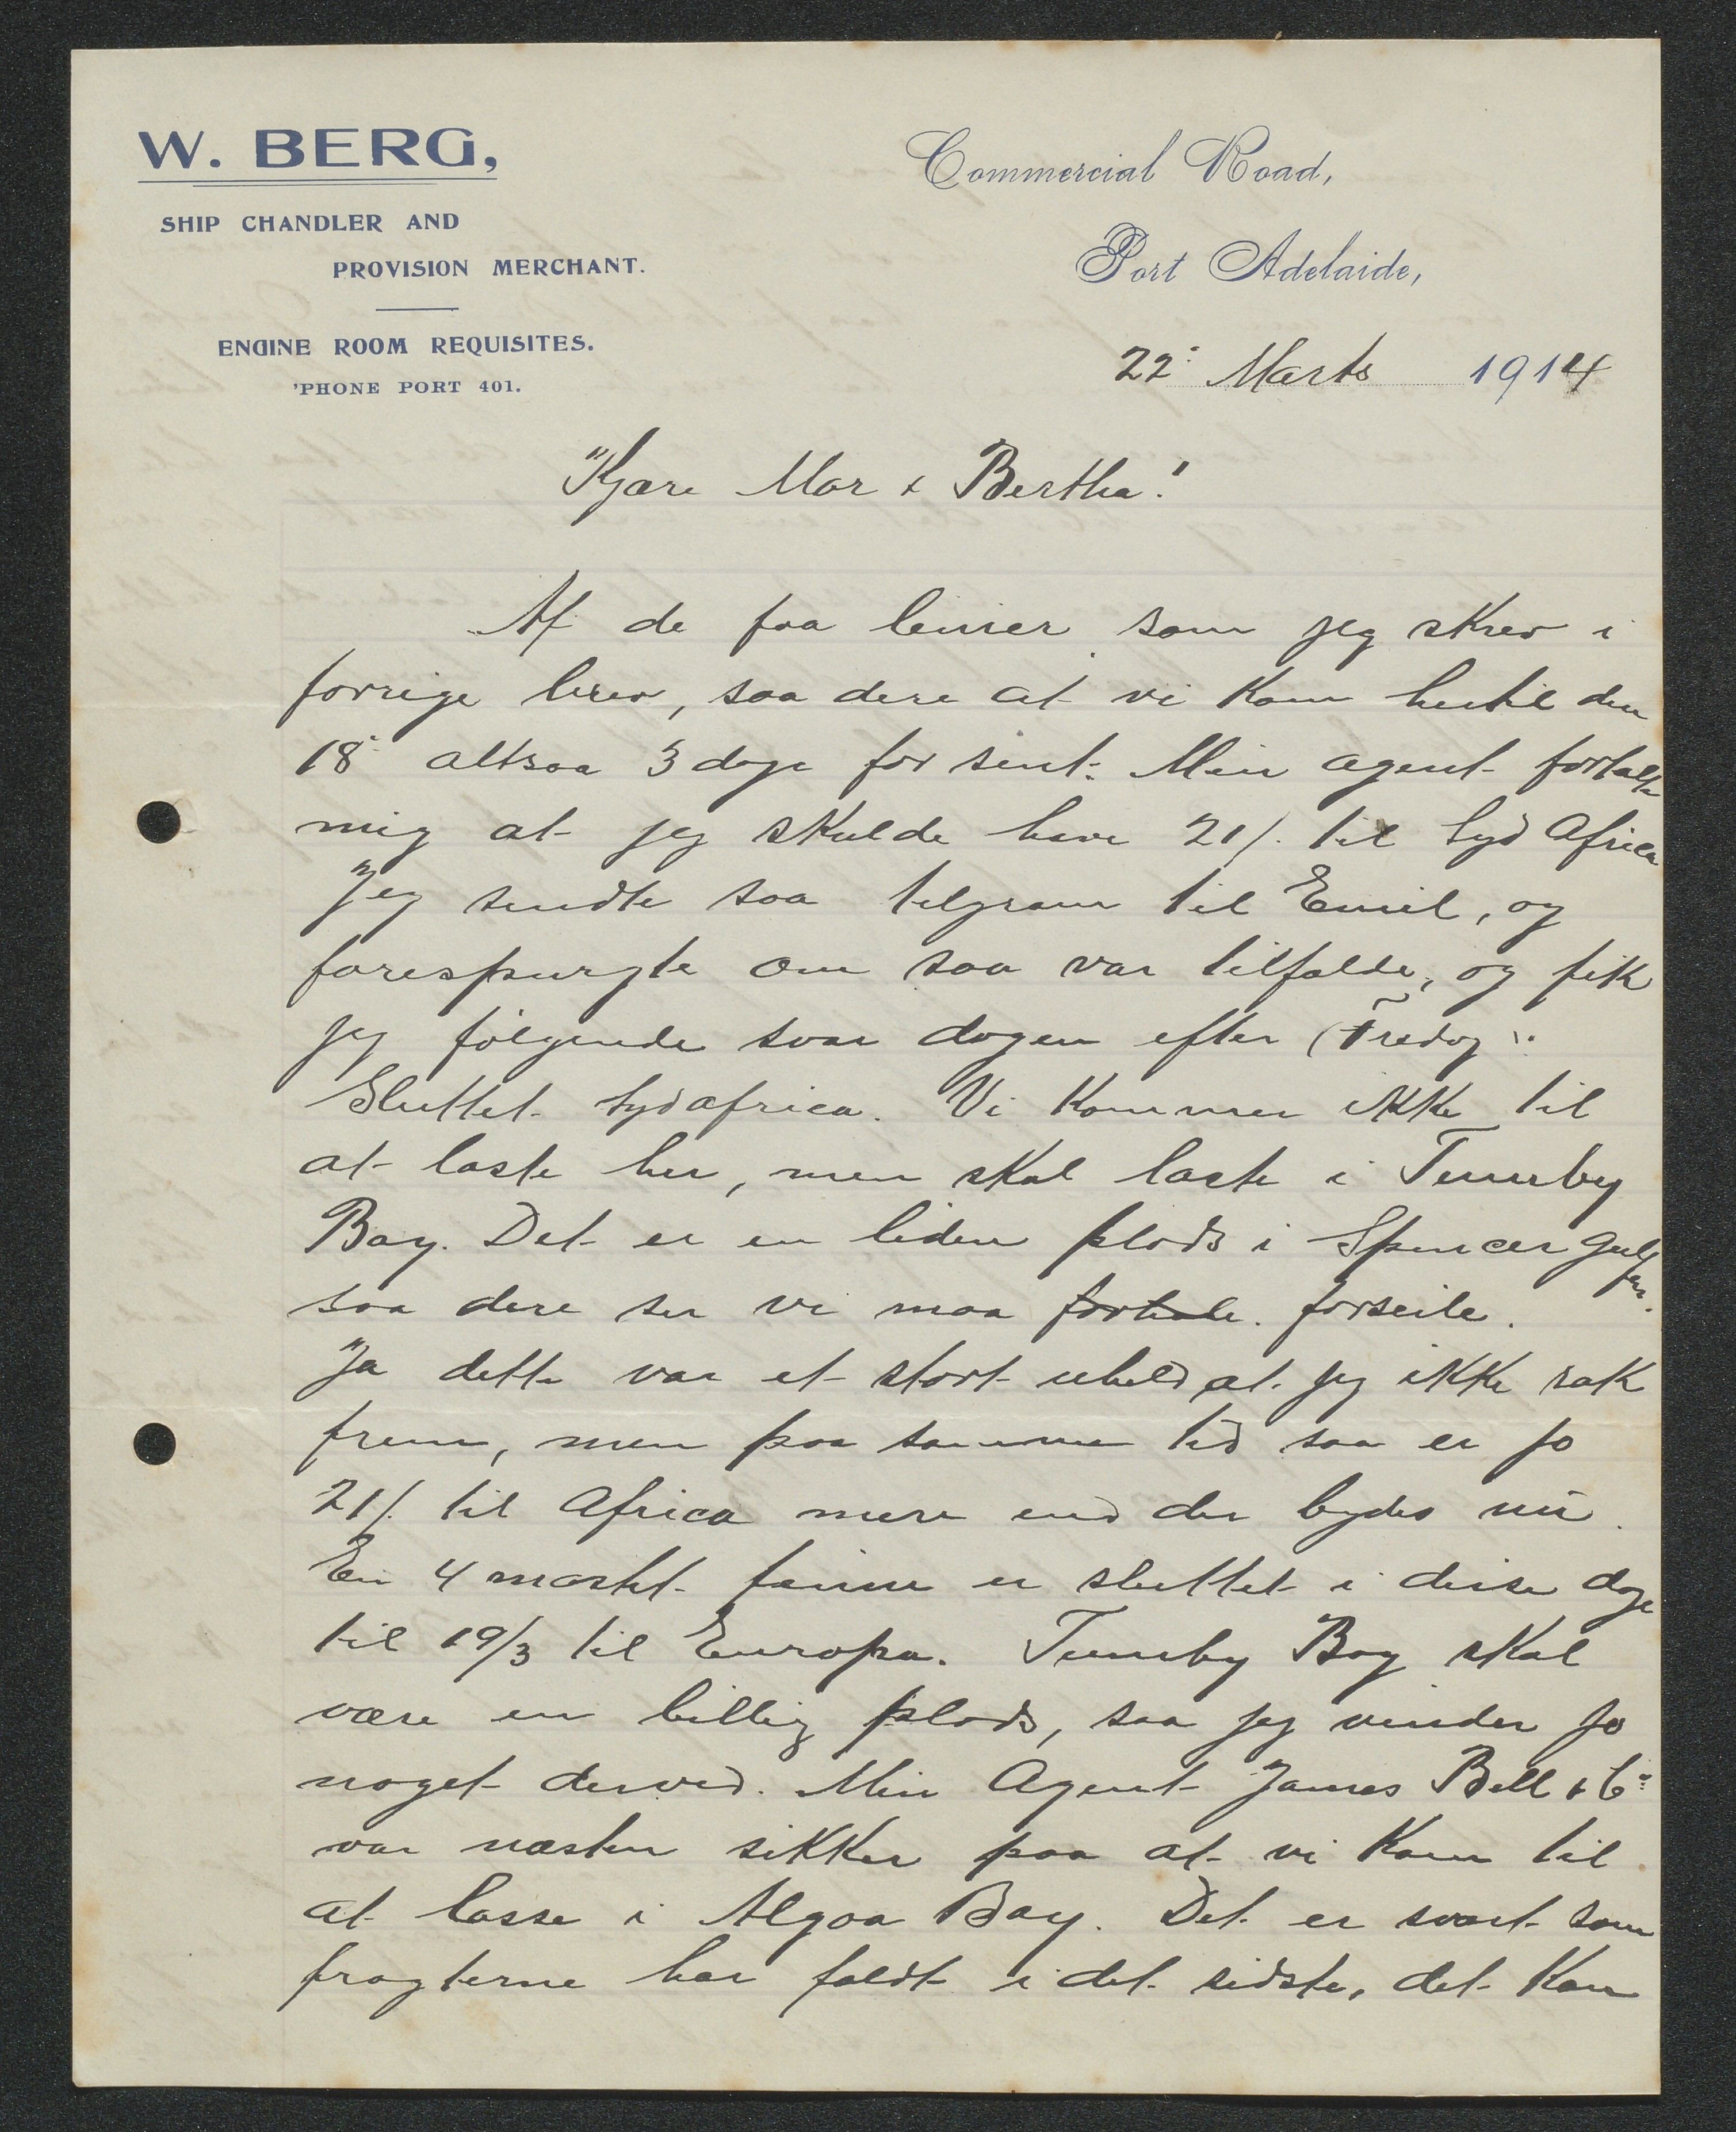 W. BERG,
SHIP CHANDLER AND
PROVISION MERCHANT.
ENGINE ROOM REQUISITES.
'PHONE PORT 401.
Commercial Road,
Port Adelaide,
22' Marts 1914
"Kjære Mor & Bertha!
Af de faa linier som jeg skrev i
forrige brev, saa dere at vi kom hertil den
18' altsaa 3 dage for sent. Min agent fortalte
mig at jeg skulde have 21/. til Syd Africa
Jeg sendte saa telgram til Emil, og
forespurgte om saa var tilfælde, og fik
jeg følgende svar dagen efter (Fredag).
Sluttet Sydafrica. Vi kommer ikke til
at laste her, men skal laste i Tumby
Bay. Det er en liden plads i Spencer Gulfen.
saa dere ser vi maa forhale. forseile.
Ja dette var et stort uheld at jeg ikke rak
frem, men paa samme tid saa er jo
21/. til Africa mere end der bydes nu.
En 4 mastet finne er sluttet i disse dage
til 19/3 til Europa. Tumby Bay skal
være en billig plads, saa jeg vinder jo
noget derved. Min Agent James Bell & Co
var næsten sikker paa at vi kom til
at losse i Algoa Bay. Det er svart som
fragterne har faldt i det sidste, det kan